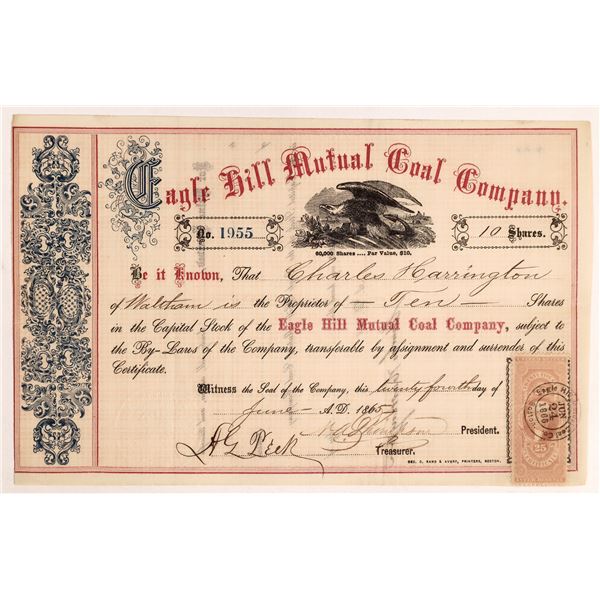 Eagle Hill Mutual Coal Company.
No. 1955
10 Shares.
60,000 Shares .... Par Value, $10.
Be it Known, That Charles Harrington
of Waltham is the Proprietor of — Ten — Shares
in the Capital Stock of the Eagle Hill Mutual Coal Company, subject to
the By-Laws of the Company, transferable by assignment and surrender of this
Certificate.
Witness the Seal of the Company, this twenty fourth day of
June A. D. 1865
President.
A G Peck Treasurer.
GEO. C. RAND & AVERY, PRINTERS, BOSTON.
JUN
24
1865
25